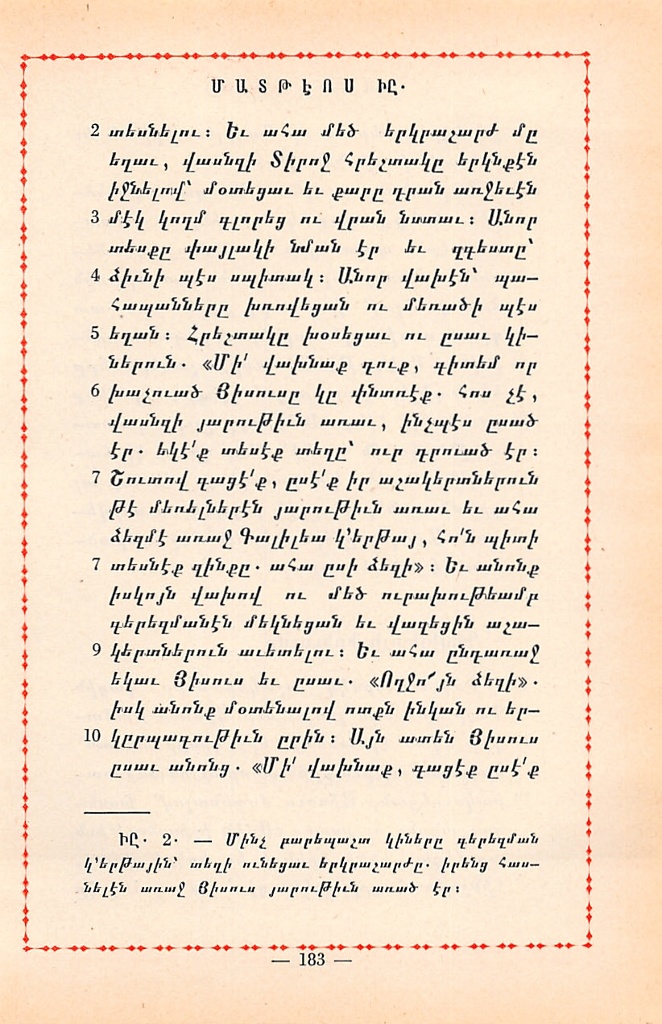 ՄԱՏԹԷՈՍ ԻԸ.
2 տեսնելու: Եւ ահա մեծ երկրաշարժ մը
եղաւ, վասնզի Տիրոջ հրեշտակը երկնքէն
իջնելով՝ մօտեցաւ եւ քարը դրան առջեւէն
3 մէկ կողմ գլորեց ու վրան նստաւ: Անոր
տեսքը փայլակի նման էր եւ զգեստը՝
4 ձիւնի պէս սպիտակ: Անոր վախէն՝ պա—
հապանները խռովեցան ու մեռածի պէս
5 եղան: Հրեշտակը խօսեցաւ ու ըսաւ կի—
ներուն. «Մի՛ վախնաք դուք, գիտեմ որ
6 խաչուած Յիսուսը կը փնտռէք. հոս չէ,
վասնզի յարութիւն առաւ, ինչպէս ըսած
էր. եկէ՛ք տեսէք տեղը՝ ուր դրուած էր:
7 Շուտով գացէ՛ք, ըսէ՛ք իր աշակերտներուն
թէ մեռելներէն յարութիւն առաւ եւ ահա
ձեզմէ առաջ Գալիլեա կ՚երթայ, հո՛ն պիտի
7 տեսնէք զինքը. ահա ըսի ձեզի»: Եւ անոնք
իսկոյն վախով ու մեծ ուրախութեամբ
գերեզմանէն մեկնեցան եւ վազեցին աշա—
9 կերտներուն աւետելու: Եւ ահա ընդառաջ
եկաւ Յիսուս եւ ըսաւ. «Ողջո՜յն ձեզի».
իսկ անոնք մօտենալով ոտքն ինկան ու եր—
10 կըրպագութիւն ըրին: Այն ատեն Յիսուս
ըսաւ անոնց. «Մի՛ վախնաք, գացէք ըսէ՛ք
ԻԸ. 2. — Մինչ բարեպաշտ կիները գերեզման
կ՚երթային՝ տեղի ունեցաւ երկրաշարժը. իրենց հաս—
նելէն առաջ Յիսուս յարութիւն առած էր:
— 183 —